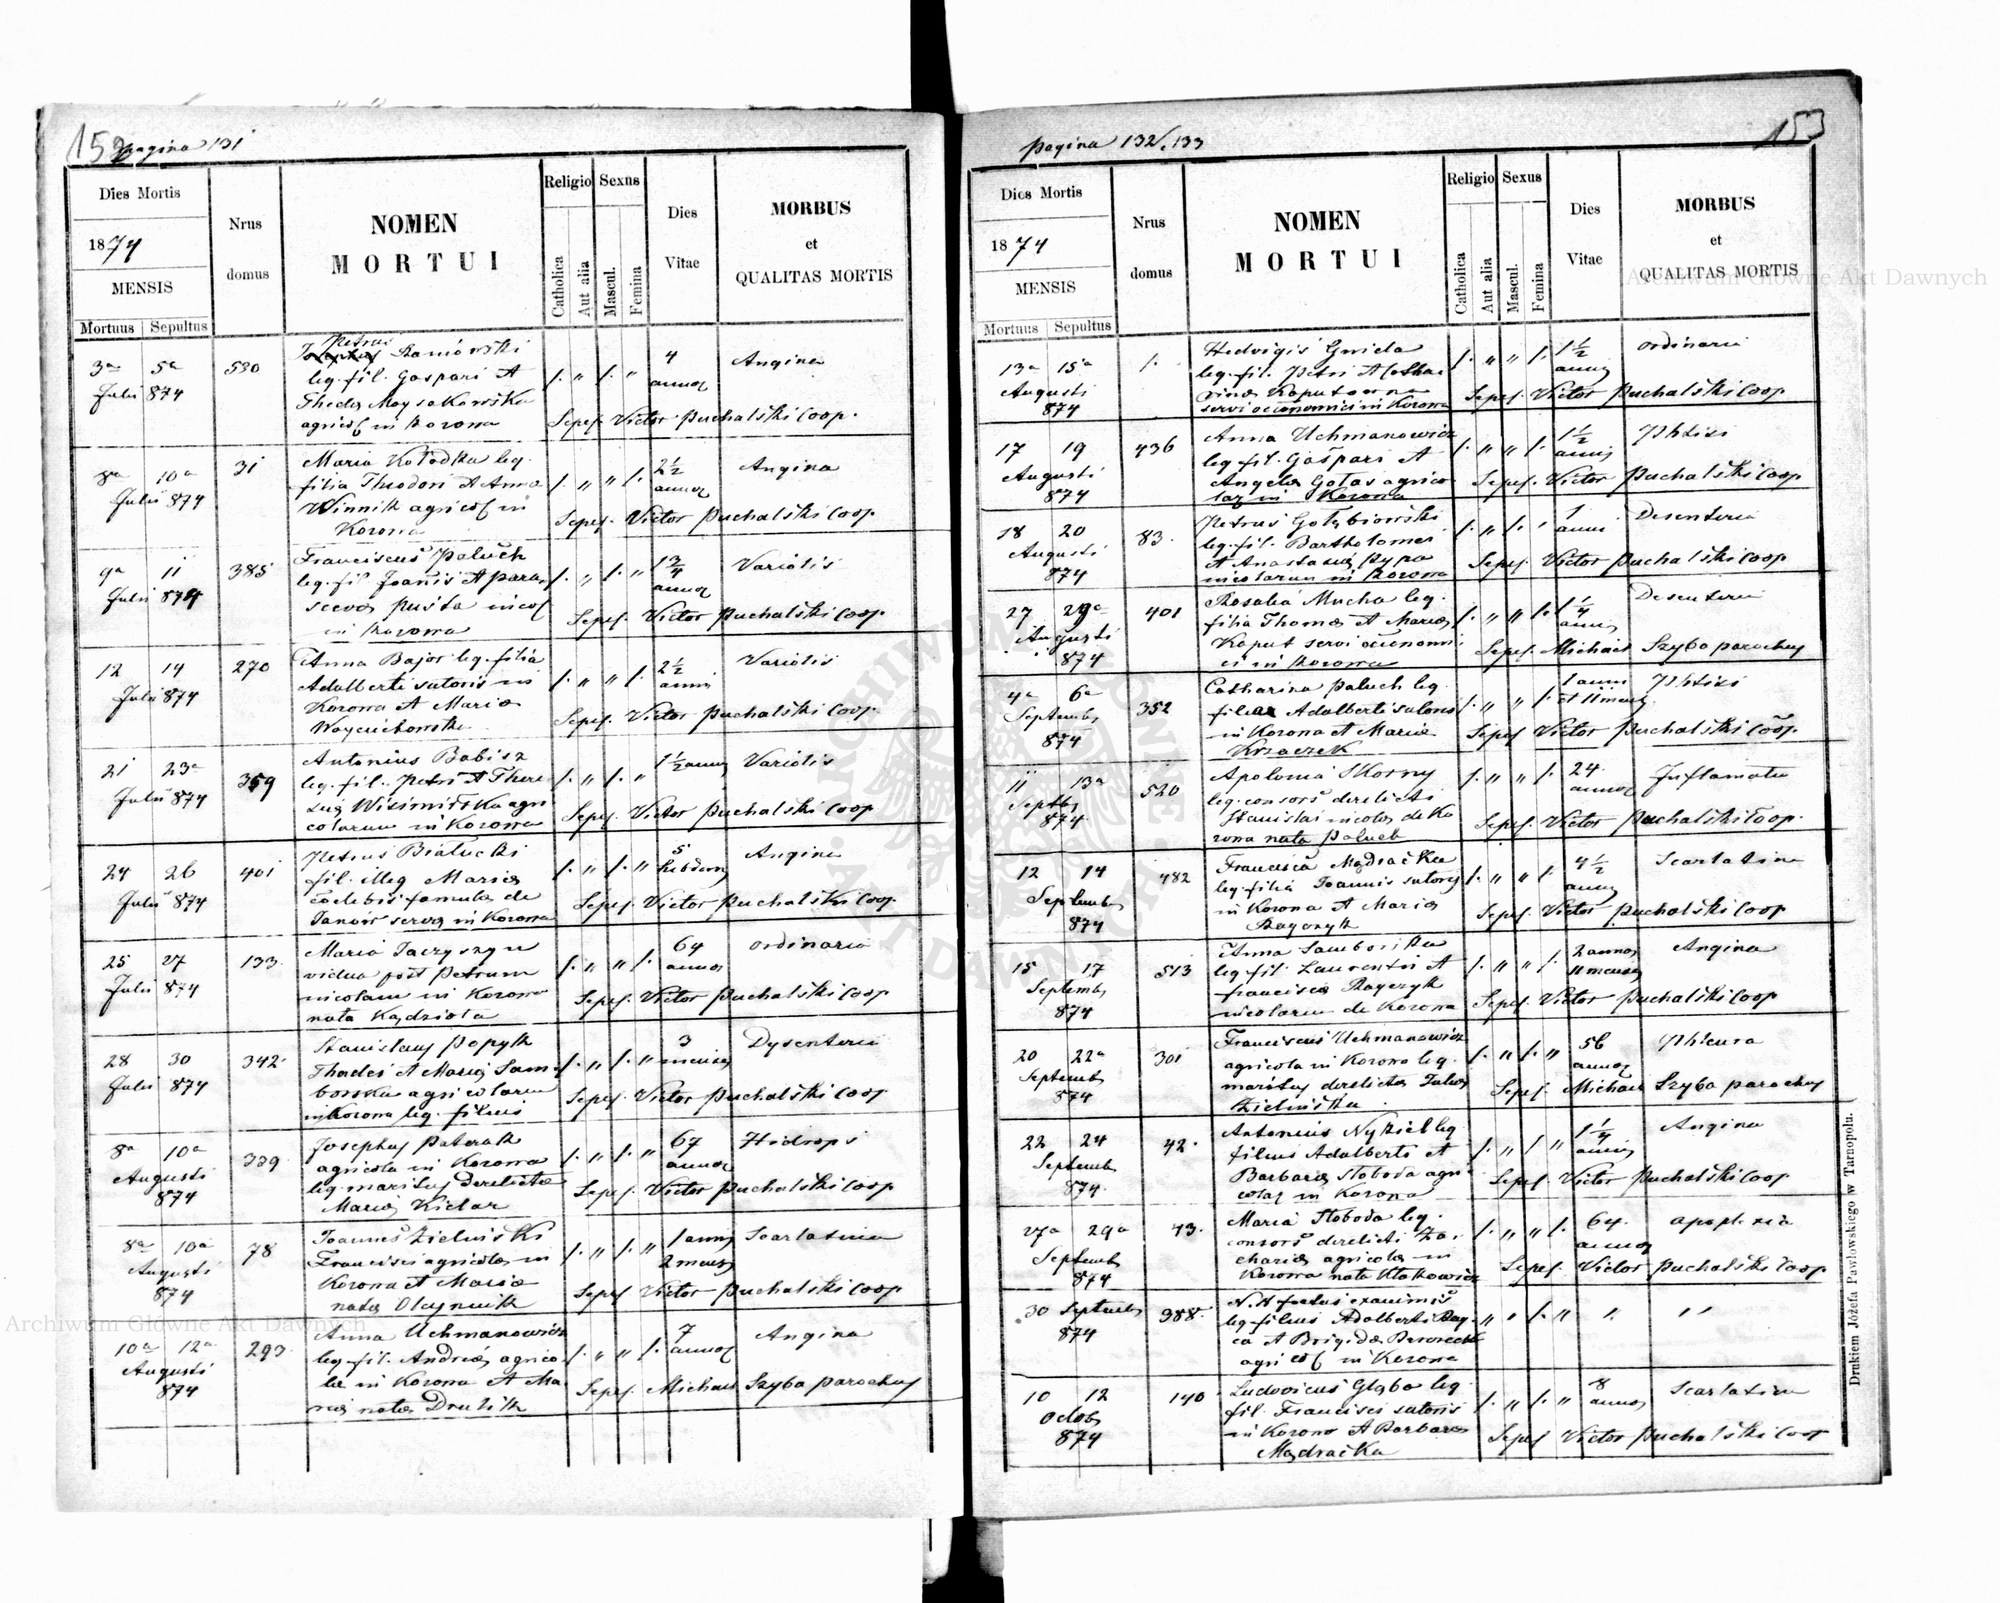 152
pagina 131
Dies Mortis
1874
MENSIS
Mortuus Sepultus
Nrus
domus
NOMEN
MORTUI
Religio
Catholica
Aut alia
Sexus
Mascul.
Femina
Dies
Vitae
MORBUS
et
QUALITAS MORTIS
3a 5a
Julii 874
530
Petrus
leg. fil. Gaspari et
agricol in Korona
1. " 1. "
4
annor
Angina
Sepel. Victor Puchalski Coop.
8a 10a
Julii 874
31
Maria Kołodka leg.
filia Theodori et Anna
Winnik agricol in
Korona
1. " " 1.
2 1/2
annor
Angina
Sepel. Victor Puchalski Coop
9a 11
Julii 874
385
Franciscus Paluch
leg. fil Joanis et Paras
in Korona
1. " 1. "
1 3/4
annor
Variolis
Sepel. Victor Puchalski Coop
12 14
Julii 874
270
Anna Bajor leg. filia
Adalberti sutoris in
Korona et Maria
1. " " 1.
2 1/2
anni
Variolis
Sepel. Victor Puchalski Coop.
21 23a
Julii 874
359
Antonius Babisz
leg. fil. Petri et There
colarum in Korona
1. " 1. "
1 1/2 anni
Variolis
Sepel. Victor Puchalski Coop
24 26
Julii 874
401
Petrus Białucki
fil. illeg Maria
coelebis famula de
in Korona
1. " 1. "
5
hebdom
Angina
Sepel. Victor Puchalski Coop.
25 27
Julii 874
133.
Maria Taczyszyn
vidua post Petrum
incolam in Korona
nata Kądziola
1. " " 1.
64
annor
ordinaria
Sepel. Victor Puchalski Coop
28 30
Julii 874
342.
Stanislaus Popyk
Thadei et Maria Sam
borska agricolarum
in Korona leg. filius
1. " 1. "
3
menses
Dysenteria
Sepel. Victor Puchalski Coop
8a 10a
Augusti
874
329.
Josephus Paterak
agricola in Korona
leg. maritus derelictae
Maria Kielar
1. " 1. "
67
annor
Hidrops
Sepel. Victor Puchalski Coop
8a 10a
Augusti
874
78
Joannes Zieliński
Francisci agricola in
Korona et Maria
nata Olejnik
1. " 1. "
1 anni
2 mens
Scarlatina
Sepel. Victor Puchalski Coop
10a 12a
Augusti
874
293.
Anna Uchmanowicz
leg. fil. Andrea agrico
la in Korona et Ma
ria nata Drużik
1. " " 1.
7
annor
Angina
Sepel. Michael Szyba parochus
153
pagina 132, 133
Dies Mortis
1874
MENSIS
Mortuus Sepultus
Nrus
domus
NOMEN
MORTUI
Religio
Catholica
Aut alia
Sexus
Mascul.
Femina
Dies
Vitae
MORBUS
et
QUALITAS MORTIS
13a 15a
Augusti
874
1.
Hedvigis Gwizda
leg. fil. Petri et Catha
rina
servi oeconomici in Korona
1. " " 1.
1 1/2
anni
ordinaria
Sepel. Victor Puchalski Coop
17 19
Augusti
874
436
Anna Uchmanowicz
leg. fil. Gaspari et
Angela Gołas agrico
lar in Korona
1. " " 1.
1 1/2
anni
Phtisi
Sepel. Victor Puchalski Coop
18 20
Augusti
874
83.
Petrus Gołębiowski
leg. fil. Bartholomei
et Anastasia Pypa
incolarum in Korona
1. " 1. "
1
anni
Desenteria
Sepel. Victor Puchalski Coop
27 29a
Augusti
874
401
Rosalia Mucha leg.
filia Thoma et Maria
Kaput servi oeconomi
ci in Korona
1. " " 1.
1 1/4
anni
Desenteria
Sepel. Michael Szyba parochus
4a 6a
Septemb
874
352
Catharina Paluch leg.
filia Adalberti sutoris
in Korona et Maria
Krzaczek
1. " " 1.
1 anni
et 11 mens.
Phtisi
Sepel Victor Puchalski Coop.
11 13a
Septbs
874.
520
Apolonia Skorny
leg. consors derelicti
Stanislai incola de Ko
rona nata Paluch
1. " " 1.
24.
annor
Inflamatio
Sepel. Victor Puchalski Coop.
12 14
Septembs
874
482
Francisca Mędračka
leg. filia Joannis sutoris
in Korona et Maria
1. " " 1.
4 1/2
anni
Scarlatina
Sepel. Victor Puchalski Coop
15 17
Septembs
874
513
Anna Samborska
leg. fil. Laurentii et
francisca
incolarum de Korona
1. " " 1.
2 annor
11 menses
Angina
Sepel. Victor Puchalski Coop
20 22a
Septemb
874
301
Franciscus Uchmanowicz
agricola in Korona leg.
maritus derelicta Salomea
Zielińska.
1. " 1. "
56
annor
Phleura
Sepel. Michael Szyba parochus
22 24
Septemb
874.
42.
Antonius Nykiel leg
filius Adalberti et
Barbara Słoboda agri
colar in Korona
1. " 1 "
1 1/4
anni
Angina
Sepel. Victor Puchalski Coop
27a 29a
Septemb
874
43.
Maria Słoboda leg.
consors derelicti Za
charia agricola in
Korona nata Kłakowicz
1. " " 1.
64.
annor
apoplexia
Sepel. Victor Puchalski Coop
30 Septemb
874
388.
N. N. foetus exanimis
leg. filius Adalberti
agricol in Korona
" " 1. "
10 12
Octob
874
140.
Ludovicus Głąba leg
fil. Francisci sutoris
in Korona et Barbara
Mędračka
1. " 1. "
8
annor
Scarlatina
Sepel Victor Puchalski Coop
Drukiem Józefa Pawłowskiego w Tarnopolu.
Archiwum Główne Akt Dawnych
Archiwum Główne Akt Dawnych
ARCHIWUM GŁÓWNE AKT DAWNYCH